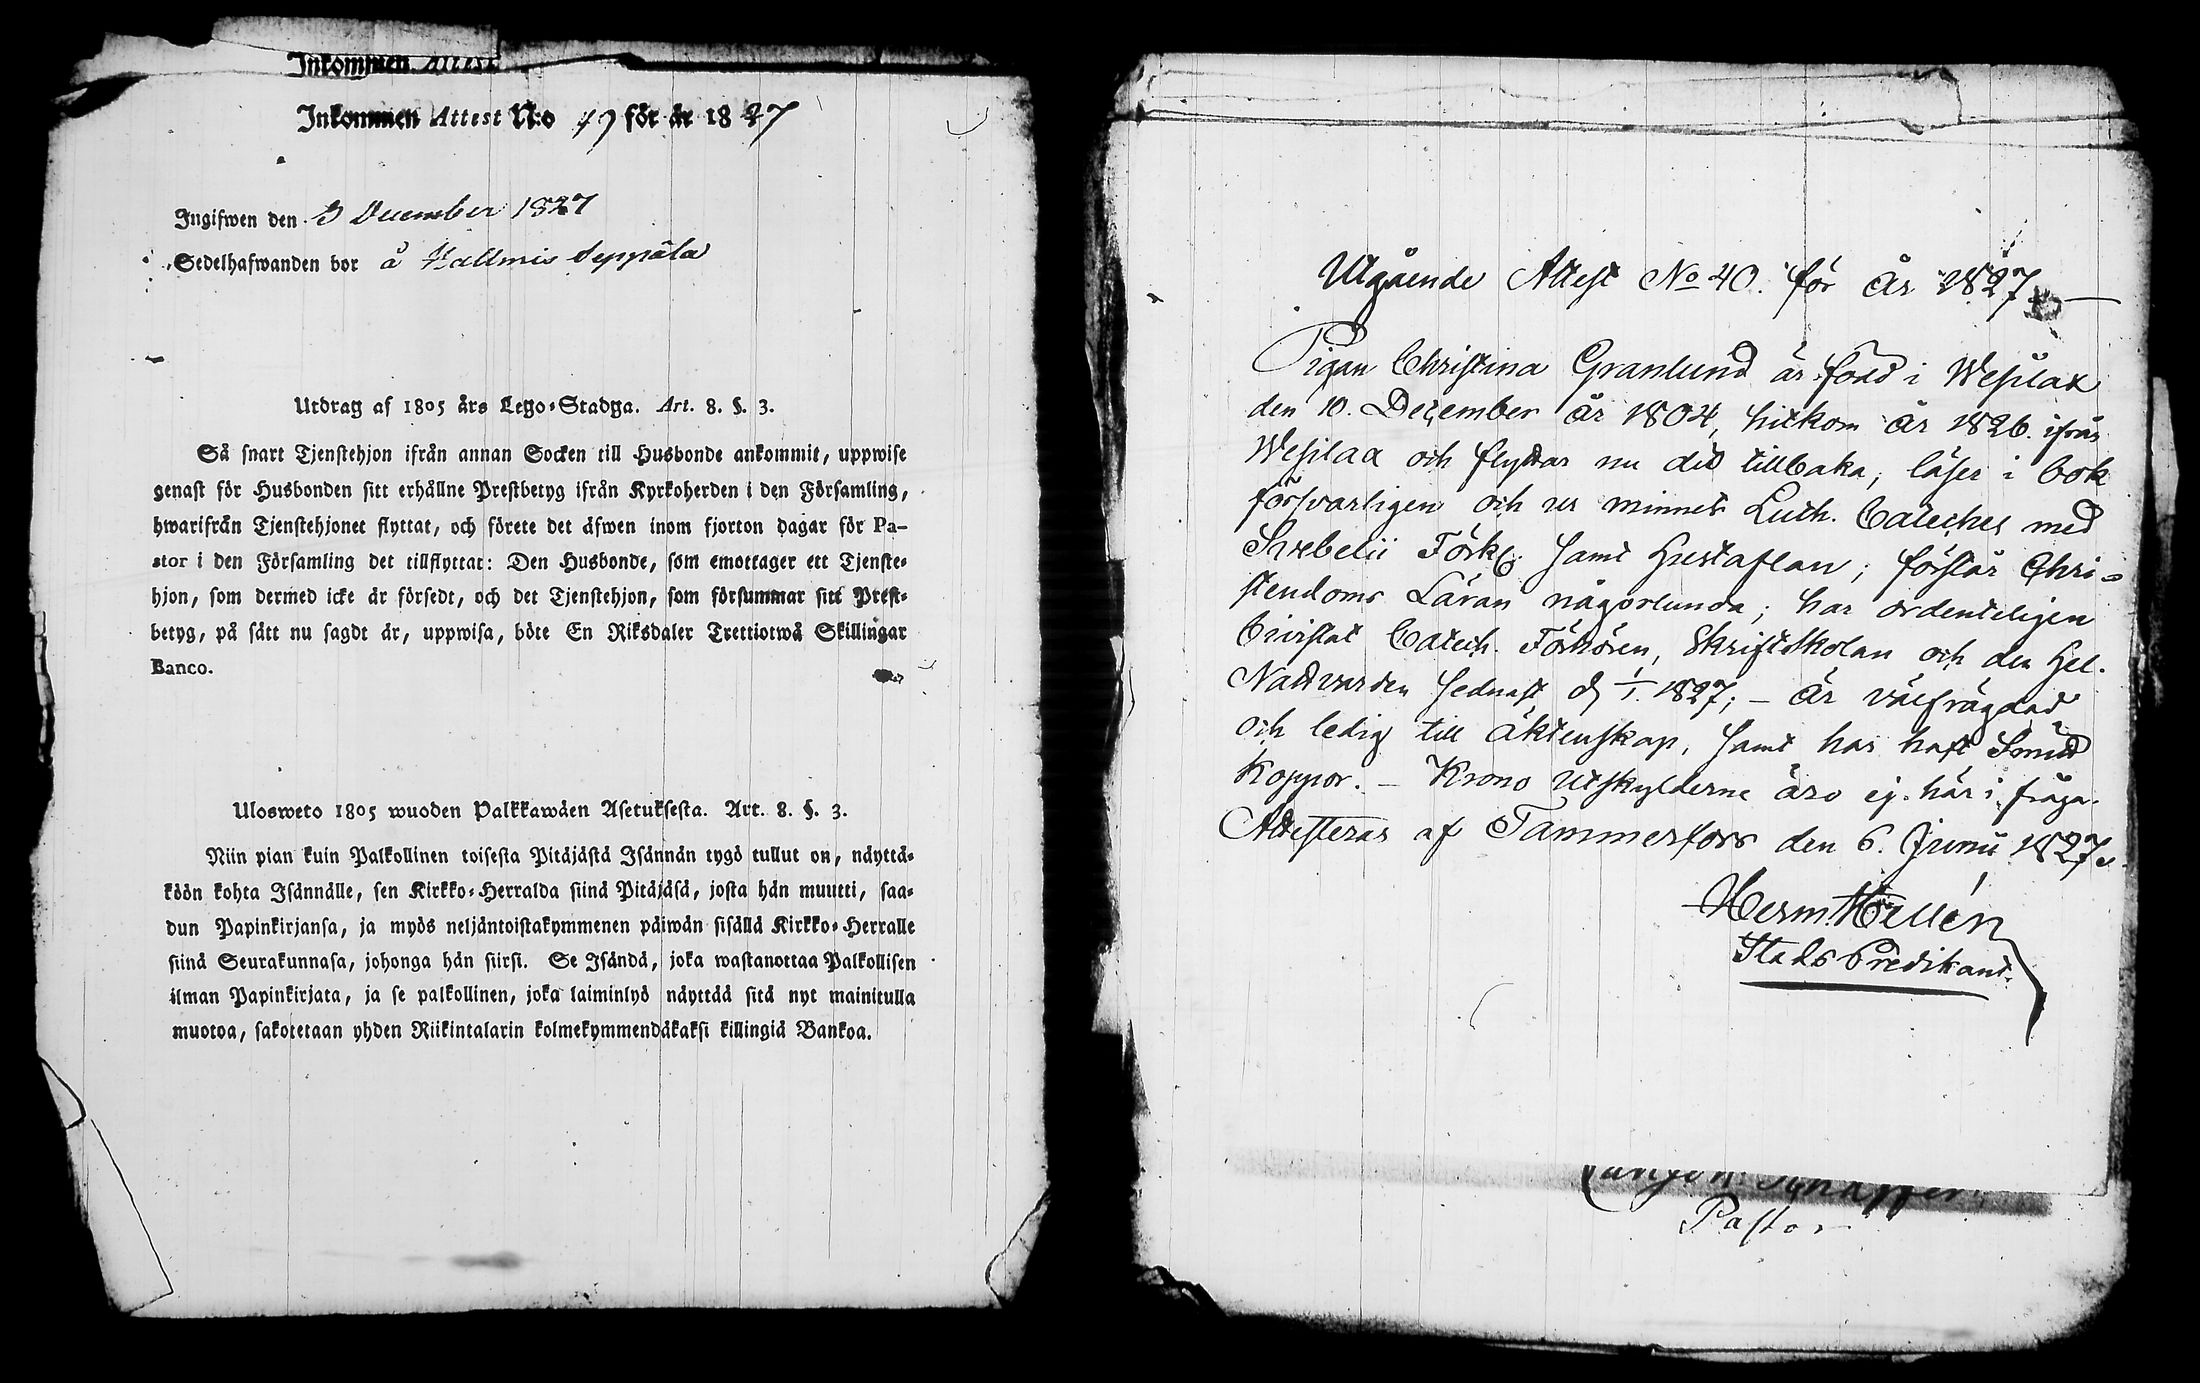 Inkommen Attest
Inkommen Attest N:o 49 för år 1827
Ingifwen den 3 December 1827
Sedelhafwanden bor å Hallmis Seppälä
Utdrag af 1805 års Lego-Stadga. Art. 8. §. 3.
Så snart Tjenstehjon ifrån annan Socken till Husbonde ankommit, uppwise
genast för Husbonden sitt erhållne Prestbetyg ifrån Kyrkoherden i den Församling,
hwarifrån Tjenstehjonet flyttat, och förete det äfwen inom fjorton dagar för Pa-
stor i den Församling det tillflyttat: Den Husbonde, som emottager ett Tjenste-
hjon, som dermed icke är försedt, och det Tjenstehjon, som försummar sitt Prest-
betyg, på sätt nu sagdt är, uppwisa, böte En Riksdaler Trettiotwå Skillingar
Banco.
Ulosweto 1805 wuoden Palkkawäen Asetuksesta. Art. 8. §. 3.
Niin pian kuin Palkollinen toisesta Pitäjästä Isännän tygö tullut on, näyttä-
köön kohta Isännälle, sen Kirkko-Herralda siinä Pitäjäsä, josta hän muutti, saa-
dun Papinkirjansa, ja myös neljäntoistakymmenen päiwän sisällä Kirkko-Herralle
siinä Seurakunnasa, johonga hän siirsi. Se Isändä, joka wastanottaa Palkollisen
ilman Papinkirjata, ja se palkollinen, joka laiminlyö näyttää sitä nyt mainitulla
muotoa, sakotetaan yhden Riikintalarin kolmekymmendäkaksi killingiä Bankoa.
Utgående Attest No 40. för år 1827.
Pigan Christina Granlund är född i Wesilax
den 10. December år 1804, hitkom år 1826. ifrån
Wesilax och flyttar nu dit tillbaka, läser i bok
försvarligen och ur minnet Luth. Cateches med
Svebelii Förkl. samt Hustaflan; förstår Chri-
stendoms Läran någorlunda; har ordenteligen
bivistat Catech. Förhören, Skriftskolan och den Hel.
Nattvarden sednast d. 1/1. 1827; – är välfrägdad
och ledig till äktenskap, samt har haft Smitt
Koppor. – Krono Utskylderne äro ej här i fråga.
Attesteras af Tammerfors den 6. Junii 1827.
Herm. Hellén
Stads Predikant.
Pastor